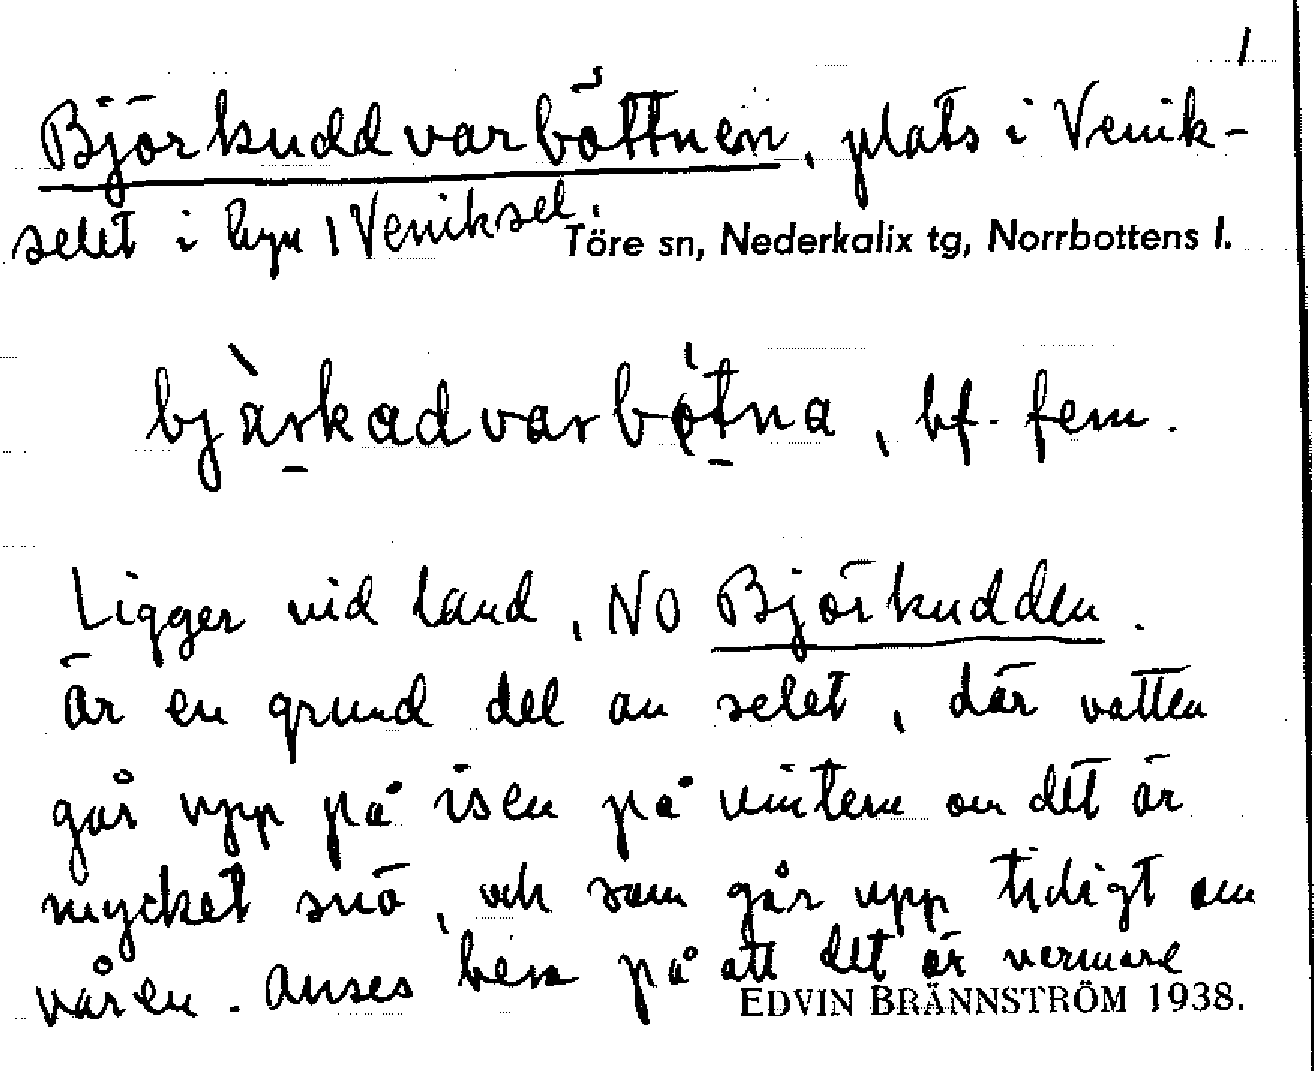 1
Björkuddvarböttnen, plats i Venik-
selet i byn 1 Veniksel.
Töre sn, Nederkalix tg, Norrbottens l.
bjärkadvarbøtna, bf. fem.
Ligger vid land, NO Björkudden.
är en grund del av selet, där vatten
går upp på isen på vintern om det är
mycket snö, och som går upp tidigt om
våren. Anses bero på att det är varmare
EDVIN BRÄNNSTRÖM 1938.